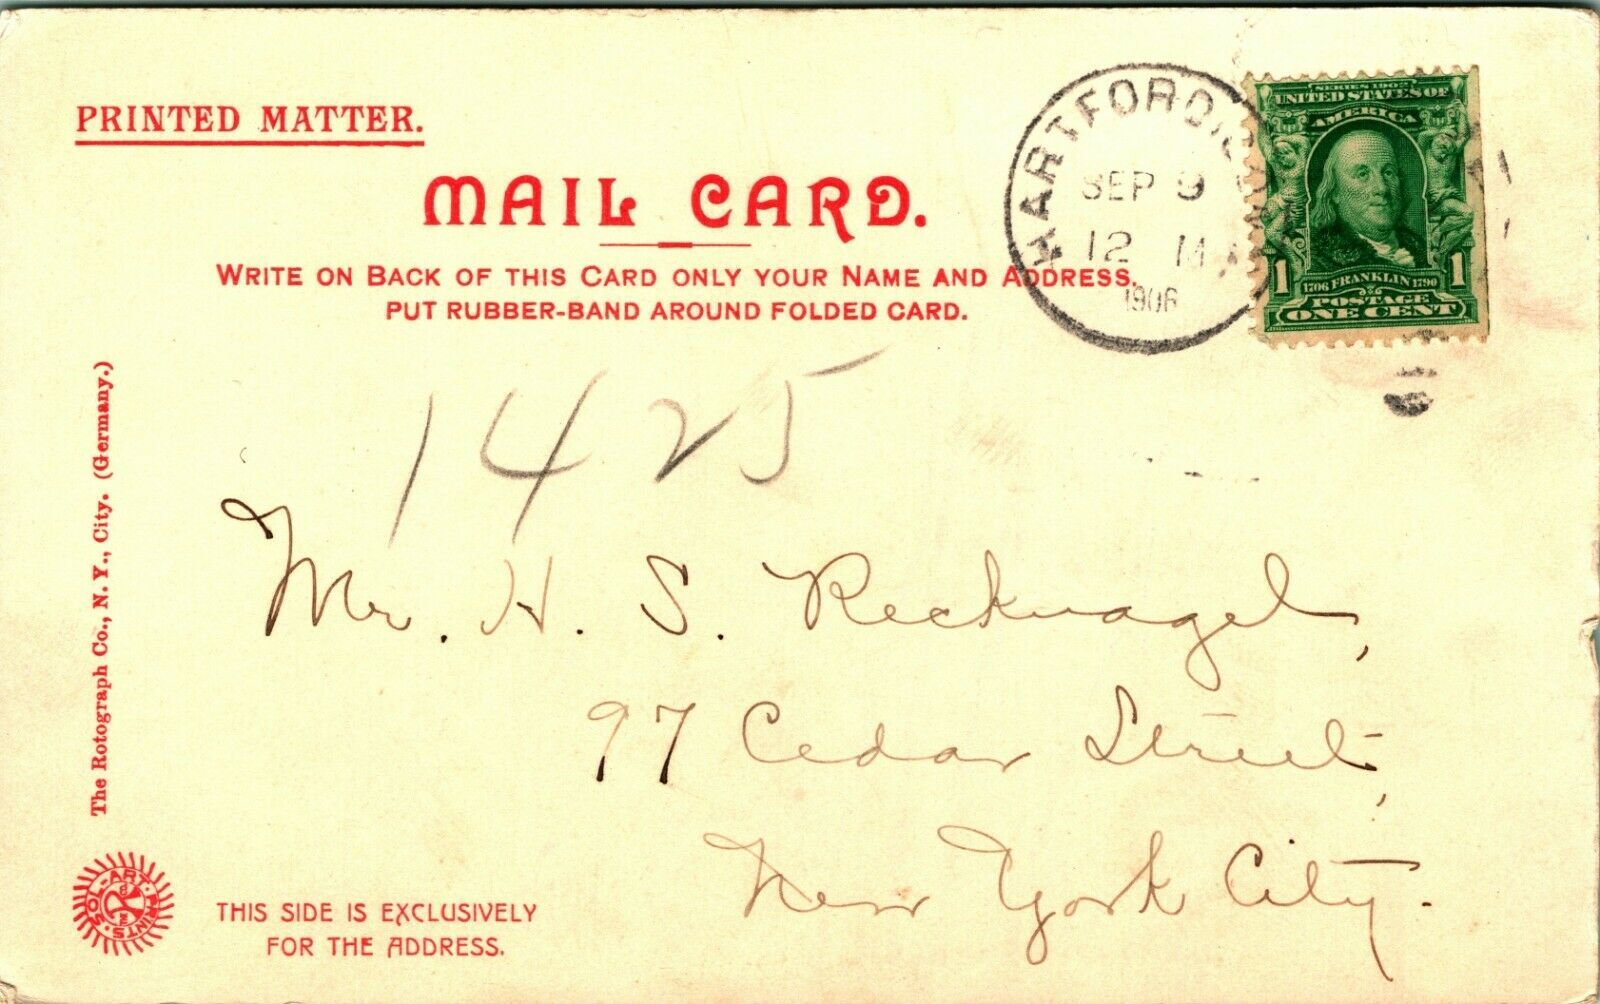 PRINTED MATTER.
MAIL CARD.
WRITE ON BACK OF THIS CARD ONLY YOUR NAME AND ADDRESS.
PUT RUBBER-BAND AROUND FOLDED CARD.
HARTFORD, CONN.
SEP 9
12 M
1906
SERIES 1902
UNITED STATES OF
AMERICA
1 1706 FRANKLIN 1790 1
POSTAGE
ONE CENT
1425
Mr. H. S. Recknagel,
97 Cedar Street,
New York City.
The Rotograph Co., N. Y., City. (Germany.)
SOL-ART-PRINTS
THIS SIDE IS EXCLUSIVELY
FOR THE ADDRESS.